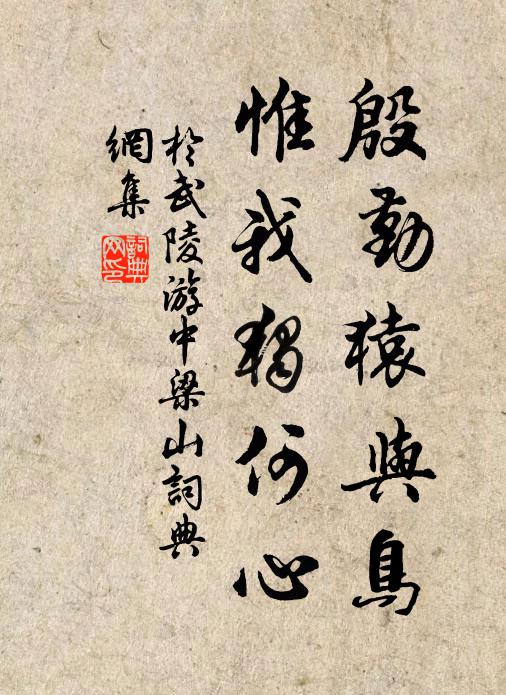 殷勤猿與鳥
惟我獨何心
於武陵游中梁山詞典
網集
詞典
网印